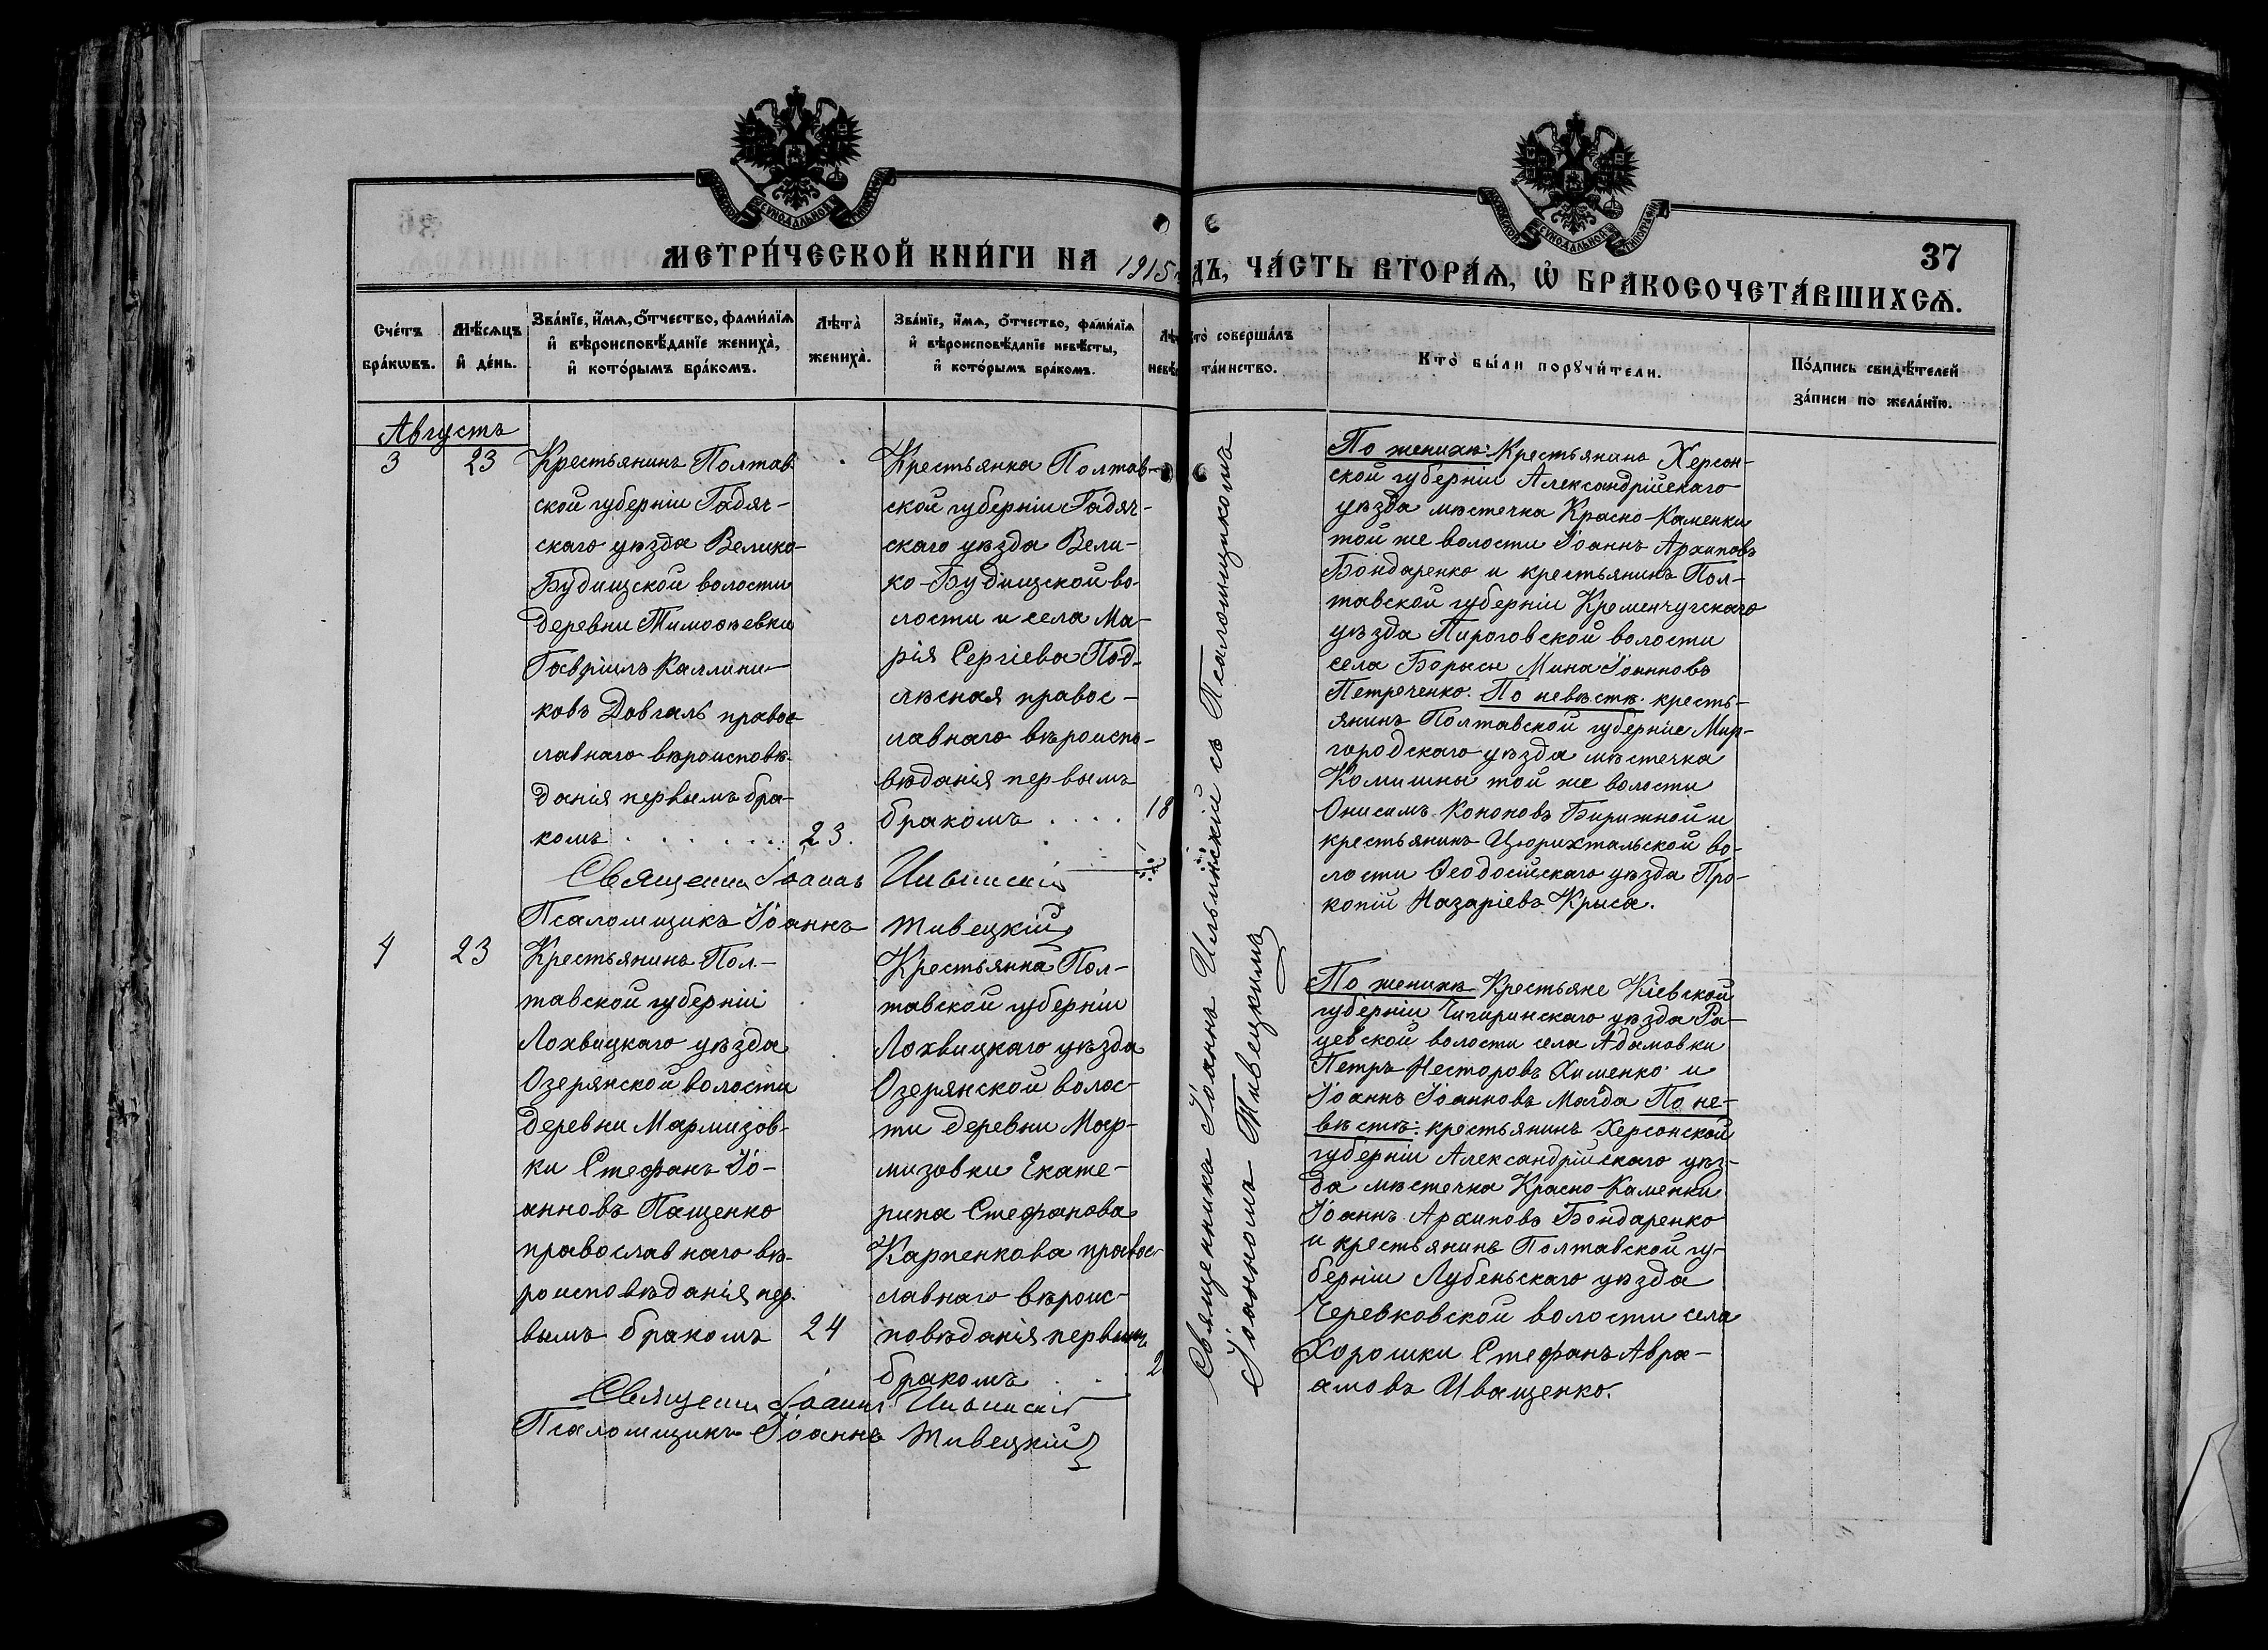 МОСКОВСКОЙ СѴНОДАЛЬНОЙ ТИПОГРАФІИ
МОСКОВСКОЙ СѴНОДАЛЬНОЙ ТИПОГРАФІИ
37
МЕТРИ́ЧЕСКОЙ КНИ́ГИ НА 1915 ДЪ, ЧА́СТЬ ВТОРА́Ѧ, Ѡ҆ БРАКОСОЧЕТА́ВШИХСѦ.
Сче́тъ бра́кωвъ.
Мѣ́сѧцъ и҆ де́нь.
Зва́нїе, и҆́мѧ, ѻ҆́тчество, фами́лїѧ
и҆ вѣроисповѣ́данїе жениха̀,
и҆ кото́рымъ бра́комъ.
Лѣта̀ жениха̀.
Зва́нїе, и҆́мѧ, ѻ҆́тчество, фами́лїѧ
и҆ вѣроисповѣ́данїе невѣ́сты,
и҆ кото́рымъ бра́комъ.
Кто̀ соверша́лъ
та́инство.
Кто̀ бы́ли порꙋчи́тели.
По́дпись свидѣ́телей
за́писи по жела́нїю.
Августъ
3 23
Крестьянинъ Полтав-
ской губерніи Гадяч-
скаго уѣзда Велико-
Будищской волости
деревни Тимоѳѣевки
Гавріилъ Каллини-
ковъ Довгаль правос
лавнаго вѣроисповѣ-
данія первымъ бра-
комъ . . . . . . 23.
Крестьянка Полтав-
ской губерніи Гадяч-
скаго уѣзда Вели-
ко-Будищской во-
лости и села Ма-
рія Сергіева Под-
лѣсная правос-
лавнаго вѣроиспо-
вѣданія первымъ
бракомъ . . . . 18
Священни Іоаннъ Ильинскій
Псаломщикъ Іоаннъ Тивецкій
Священникъ Іоаннъ Ильинскій съ Псаломщикомъ
Іоанномъ Тивецкимъ
По женихѣ: Крестьянинъ Херсон-
ской губерніи Александрійскаго
уѣзда мѣстечка Красно-Каменки
той же волости Іоаннъ Архиповъ
Бондаренко и крестьянинъ Пол-
тавской губерніи Кременчугскаго
уѣзда Пироговской волости
села Борисы Мина Іоанновъ
Петреченко. По невѣстѣ: кресть-
янинъ Полтавской губерніе Мир-
городскаго уѣзда мѣстечка
Комишны той же волости
Онисимъ Кононовъ Бирижной и
крестьянинъ Цюрихтальской во-
лости Ѳеодосійскаго уѣзда Про-
копій Назаріевъ Крыса.
4 23
Крестьянинъ Пол-
тавской губерніи
Лохвицкаго уѣзда
Озерянской волости
деревни Мармизов-
ки Стефанъ Іо-
анновъ Пащенко
православнаго вѣ-
роисповѣданія пер-
вымъ бракомъ 24
Крестьянка Пол-
тавской губерніи
Лохвицкаго уѣзда
Озерянской волос-
ти деревни Мар-
мизовки Екате-
рина Стефанова
Карпенкова правос-
лавнаго вѣроис-
повѣданія первымъ
бракомъ . . . 2
Священни Іоаннъ Ильинскій
Псаломщикъ Іоаннъ Тивецкій
По женихѣ Крестьяне Кіевской
губерніи Чигиринскаго уѣзда Ра-
цевской волости села Адамовки
Петръ Несторовъ Хименко и
Іоаннъ Іоанновъ Магда По не-
вѣстѣ: крестьянинъ Херсонской
губерніи Александрійскаго уѣз-
да мѣстечка Красно-Каменки
Іоаннъ Архиповъ Бондаренко
и крестьянинъ Полтавской гу-
берніи Лубеньскаго уѣзда
Черевковской волости села
Хорошки Стефанъ Авра-
амовъ Иващенко.